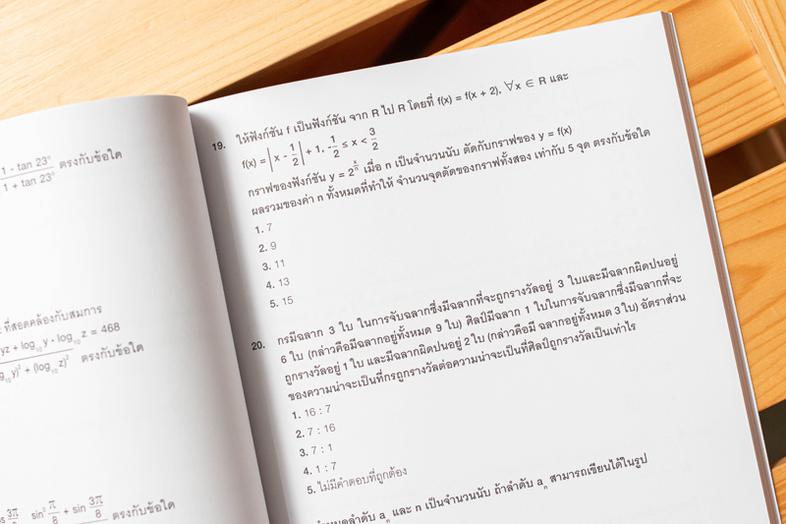 1 - tan 23° ตรงกับข้อใด
1 + tan 23°
ที่สอดคล้องกับสมการ
yz + log₁₀ y · log₁₀ z = 468
y)² + (log₁₀ z)² ตรงกับข้อใด
3π/8 sin² π/8 + sin 3π/8 ตรงกับข้อใด
19. ให้ฟังก์ชัน f เป็นฟังก์ชัน จาก R ไป R โดยที่ f(x) = f(x + 2), ∀x ∈ R และ
f(x) = |x - 1/2| + 1, -1/2 ≤ x < 3/2
กราฟของฟังก์ชัน y = 2^(x/n) เมื่อ n เป็นจำนวนนับ ตัดกับกราฟของ y = f(x)
ผลรวมของค่า n ทั้งหมดที่ทำให้ จำนวนจุดตัดของกราฟทั้งสอง เท่ากับ 5 จุด ตรงกับข้อใด
1. 7
2. 9
3. 11
4. 13
5. 15
20. กรมีฉลาก 3 ใบ ในการจับฉลากซึ่งมีฉลากที่จะถูกรางวัลอยู่ 3 ใบและมีฉลากผิดปนอยู่
6 ใบ (กล่าวคือมีฉลากอยู่ทั้งหมด 9 ใบ) ศิลป์มีฉลาก 1 ใบในการจับฉลากซึ่งมีฉลากที่จะ
ถูกรางวัลอยู่ 1 ใบ และมีฉลากผิดปนอยู่ 2 ใบ (กล่าวคือมี ฉลากอยู่ทั้งหมด 3 ใบ) อัตราส่วน
ของความน่าจะเป็นที่กรถูกรางวัลต่อความน่าจะเป็นที่ศิลป์ถูกรางวัลเป็นเท่าไร
1. 16 : 7
2. 7 : 16
3. 7 : 1
4. 1 : 7
5. ไม่มีคำตอบที่ถูกต้อง
ลำดับ aₙ และ n เป็นจำนวนนับ ถ้าลำดับ aₙ สามารถเขียนได้ในรูป